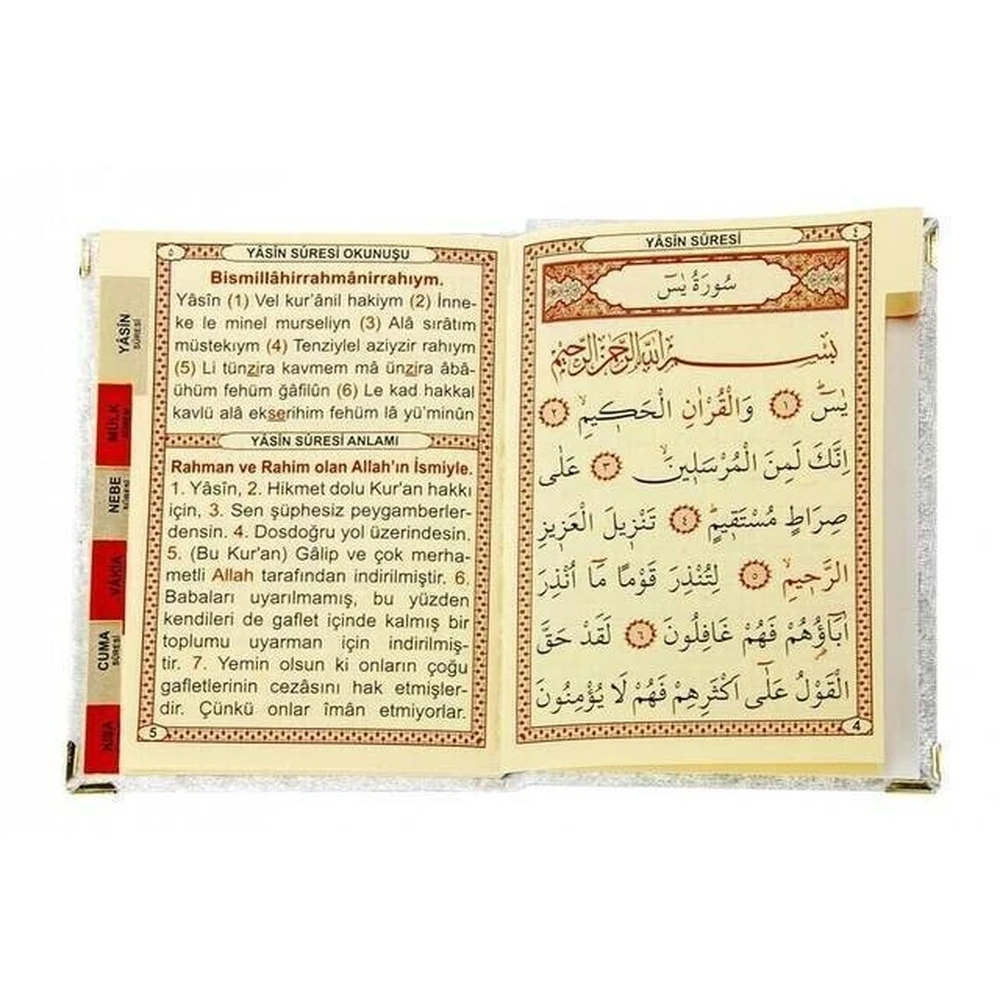 ٥
YÂSÎN SÛRESİ OKUNUŞU
Bismillâhirrahmânirrahıym.
Yâsîn (1) Vel kur'ânil hakiym (2) İnne-
ke le minel murseliyn (3) Alâ sırâtım
müstekıym (4) Tenziylel aziyzir rahıym
(5) Li tünzira kavmem mâ ünzira âbâ-
ühüm fehüm ğâfilûn (6) Le kad hakkal
kavlü alâ ekserihim fehüm lâ yü'minûn
YÂSÎN SÛRESİ ANLAMI
Rahman ve Rahim olan Allah'ın İsmiyle.
1. Yâsîn, 2. Hikmet dolu Kur'an hakkı
için, 3. Sen şüphesiz peygamberler-
densin. 4. Dosdoğru yol üzerindesin.
5. (Bu Kur'an) Gâlip ve çok merha-
metli Allah tarafından indirilmiştir. 6.
Babaları uyarılmamış, bu yüzden
kendileri de gaflet içinde kalmış bir
toplumu uyarman için indirilmiş-
tir. 7. Yemin olsun ki onların çoğu
gafletlerinin cezâsını hak etmişler-
dir. Çünkü onlar îmân etmiyorlar.
5
YÂSİN SÛRESİ
MÜLK
NEBE SÛRESİ
VÂKIA
CUMA SÛRESİ
KISA
YÂSÎN SÛRESİ
٤
سُورَةُ يٰسٓ
بِسْمِ اللّٰهِ الرَّحْمٰنِ الرَّحِيمِ
يٰسٓ ﴿١﴾ وَالْقُرْاٰنِ الْحَكِيمِۙ ﴿٢﴾
اِنَّكَ لَمِنَ الْمُرْسَلِينَۙ ﴿٣﴾ عَلٰى
صِرَاطٍ مُسْتَقِيمٍۜ ﴿٤﴾ تَنْزِيلَ الْعَزِيزِ
الرَّحِيمِۙ ﴿٥﴾ لِتُنْذِرَ قَوْمًا مَٓا اُنْذِرَ
اٰبَٓاؤُهُمْ فَهُمْ غَافِلُونَ ﴿٦﴾ لَقَدْ حَقَّ
الْقَوْلُ عَلٰٓى اَكْثَرِهِمْ فَهُمْ لَا يُؤْمِنُونَ
4